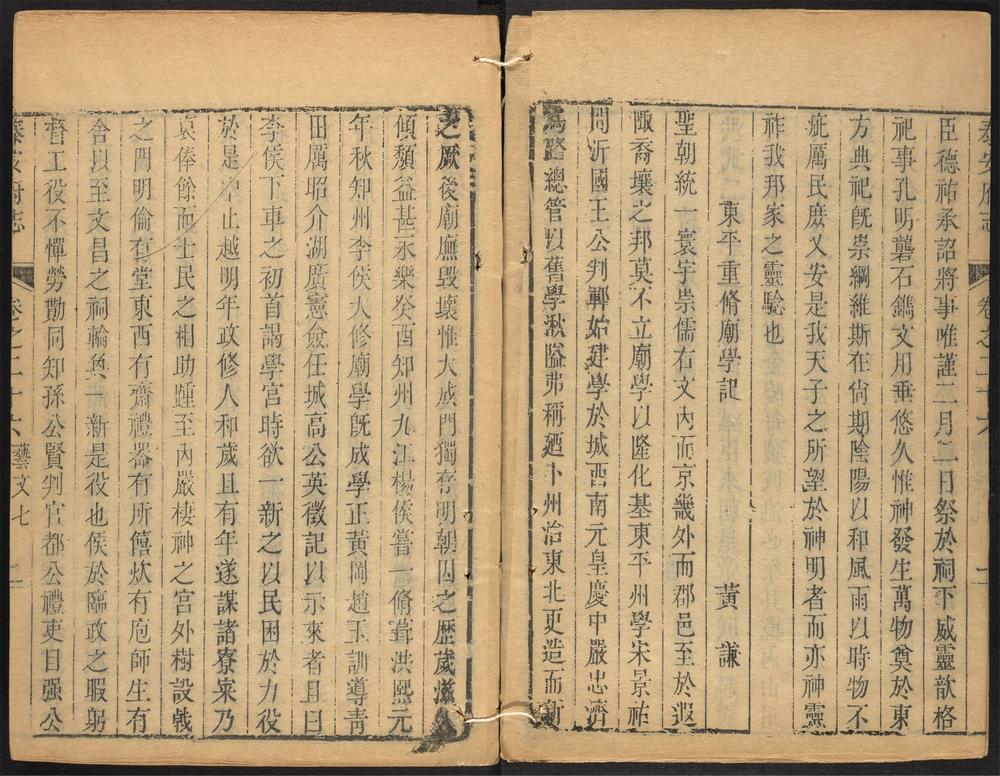 泰安府志 卷之二十六 一
臣德祐承詔將事唯謹二月二日祭於祠下威靈歆格
祀事孔明礱石鐫文用垂悠久惟神發生萬物奠於東
方典祀旣崇綱維斯在尙期陰陽以和風雨以時物不
疵厲民庶乂安是我天子之所望於神明者而亦神靈
祚我邦家之靈騐也
東平重脩廟學記 黃謙
聖朝統一寰宇崇儒右文內而京畿外而郡邑至於遐
陬裔壤之邦莫不立廟學以隆化基東平州學宋景祐
間沂國王公判鄆始建學於城西南元皇慶中嚴忠濟
爲路總管以舊學湫隘弗稱廼卜州治東北更造而新
之厥後廟廡毀壞惟大成門獨存明朝因之歷歲滋久
傾頹益甚永樂癸酉知州九江楊侯嘗一脩葺洪熙元
年秋知州李侯大修廟學旣成學正黃陶趙玉訓導靑
田厲昭介湖廣憲僉任城高公英徵記以示來者且曰
李侯下車之初首謁學宮時欲一新之以民困於力役
於是中止越明年政修人和歲且有年遂謀諸寮寀乃
裒俸餘而士民之相助踵至內嚴棲神之宮外樹設戟
之門明倫有堂東西有齋禮器有所饎炊有庖師生有
舍以至文昌之祠輪奐一新是役也侯於臨政之暇躬
督工役不憚勞勩同知孫公賢判官都公禮吏目强公
泰安府志 卷之二十六 藝文七 二